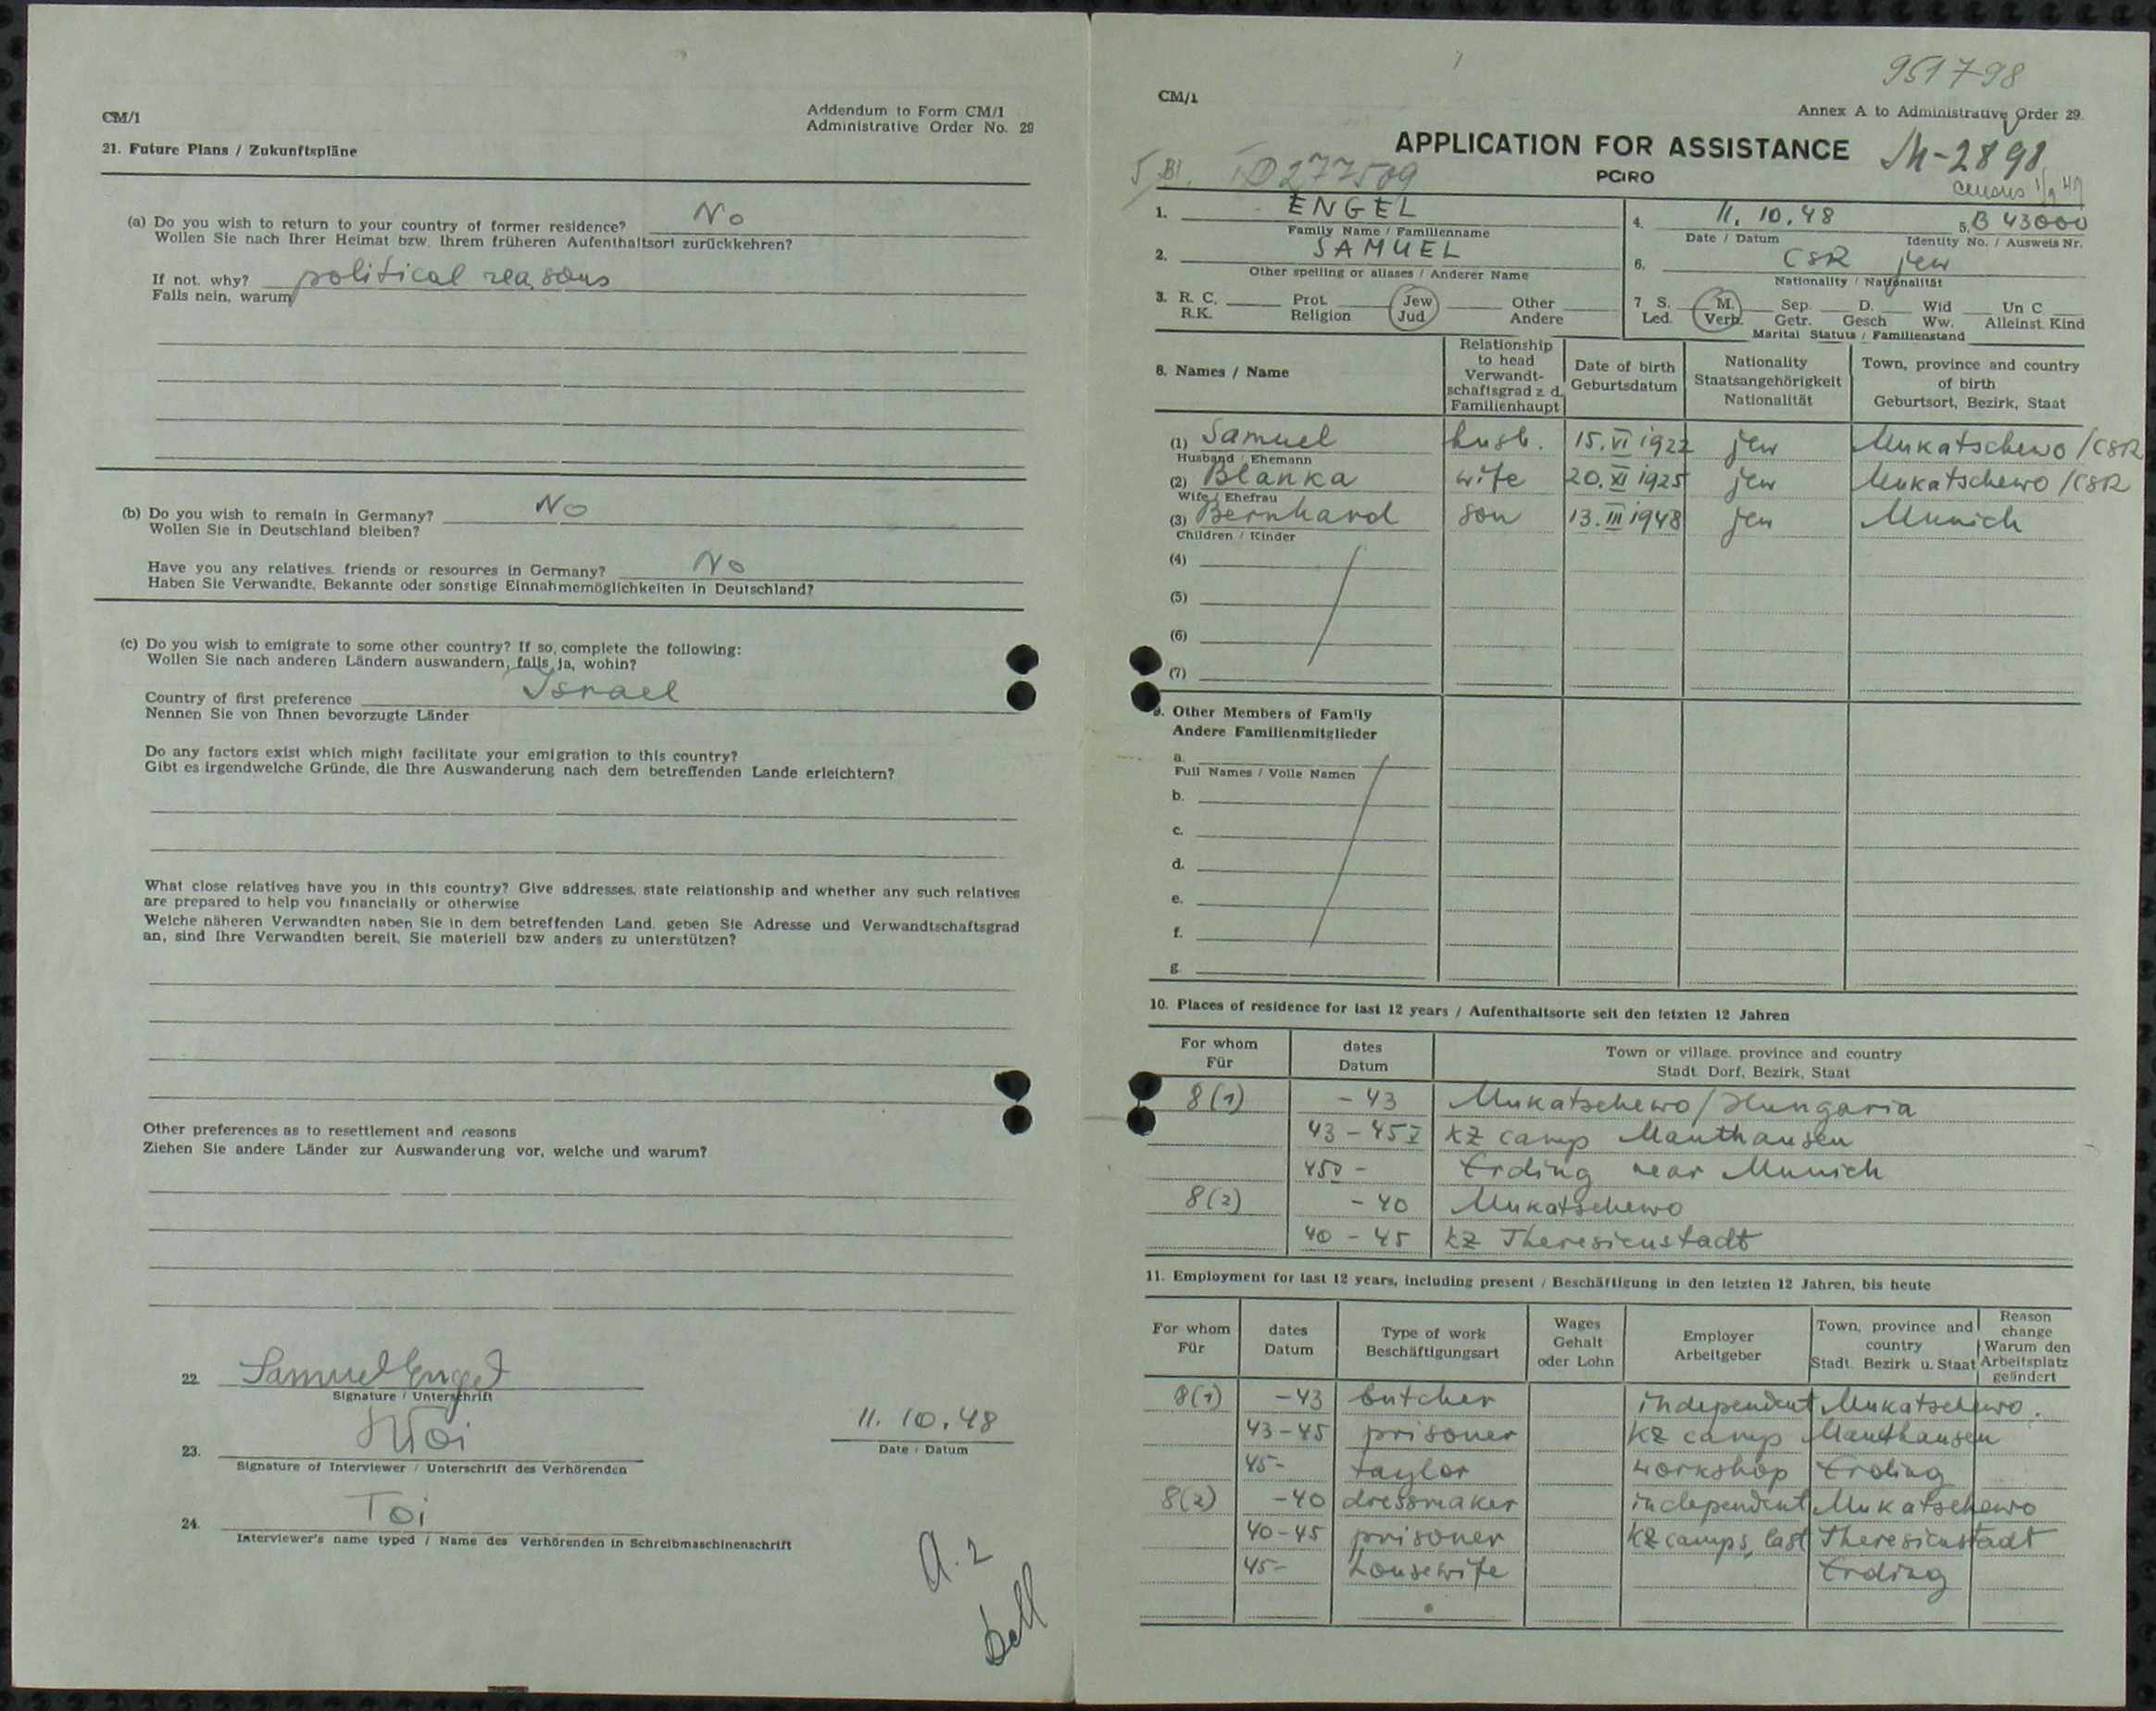 CM/1
Addendum to Form CM/1
Administrative Order No. 29
21. Future Plans / Zukunftspläne
(a) Do you wish to return to your country of former residence? No
Wollen Sie nach Ihrer Heimat bzw. Ihrem früheren Aufenthaltsort zurückkehren?
If not, why? political reasons
Falls nein, warum
(b) Do you wish to remain in Germany? No
Wollen Sie in Deutschland bleiben?
Have you any relatives, friends or resources in Germany? No
Haben Sie Verwandte, Bekannte oder sonstige Einnahmemöglichkeiten in Deutschland?
(c) Do you wish to emigrate to some other country? If so, complete the following:
Wollen Sie nach anderen Ländern auswandern, falls ja, wohin?
Country of first preference Israel
Nennen Sie von Ihnen bevorzugte Länder
Do any factors exist which might facilitate your emigration to this country?
Gibt es irgendwelche Gründe, die Ihre Auswanderung nach dem betreffenden Lande erleichtern?
What close relatives have you in this country? Give addresses, state relationship and whether any such relatives
are prepared to help you financially or otherwise
Welche näheren Verwandten haben Sie in dem betreffenden Land, geben Sie Adresse und Verwandtschaftsgrad
an, sind Ihre Verwandten bereit, Sie materiell bzw anders zu unterstützen?
Other preferences as to resettlement and reasons
Ziehen Sie andere Länder zur Auswanderung vor, welche und warum?
22. Samuel Engel
Signature / Unterschrift
11. 10. 48
Date / Datum
23.
Signature of Interviewer / Unterschrift des Verhörenden
24. Toi
Interviewer's name typed / Name des Verhörenden in Schreibmaschinenschrift
a. 2
951798
CM/1
Annex A to Administrative Order 29.
APPLICATION FOR ASSISTANCE M-2898
5 Bl. D277509 PCIRO census 1/9 49
1. ENGEL
Family Name / Familienname
4. 11. 10. 48
Date / Datum
5. B 43000
Identity No. / Ausweis Nr.
2. SAMUEL
Other spelling or aliases / Anderer Name
6. CSR jew
Nationality / Nationalität
3. R. C. Prot. Jew Other
R.K. Religion Jud Andere
7 S. M. Sep. D. Wid Un C
Led. Verh. Getr. Gesch Ww. Alleinst. Kind
Marital Status / Familienstand
8. Names / Name
Relationship to head Verwandt-schaftsgrad z. d. Familienhaupt
Date of birth Geburtsdatum
Nationality Staatsangehörigkeit Nationalität
Town, province and country of birth Geburtsort, Bezirk, Staat
(1) Samuel husb. 15. VI 1922 jew Mukatschewo / CSR
Husband / Ehemann
(2) Blanka wife 20. XI 1925 jew Mukatschewo / CSR
Wife / Ehefrau
(3) Bernhard son 13. III 1948 jew Munich
Children / Kinder
(4)
(5)
(6)
(7)
9. Other Members of Family
Andere Familienmitglieder
a.
Full Names / Volle Namen
b.
c.
d.
e.
f.
g.
10. Places of residence for last 12 years / Aufenthaltsorte seit den letzten 12 Jahren
For whom Für
dates Datum
Town or village, province and country Stadt. Dorf, Bezirk, Staat
8(1) - 43 Mukatschewo / Hungaria
43 - 45 V KZ camp Mauthausen
45 V - Erding near Munich
8(2) - 40 Mukatschewo
40 - 45 KZ Theresienstadt
11. Employment for last 12 years, including present / Beschäftigung in den letzten 12 Jahren, bis heute
For whom Für
dates Datum
Type of work Beschäftigungsart
Wages Gehalt oder Lohn
Employer Arbeitgeber
Town, province and country Stadt. Bezirk u. Staat
Reason change Warum den Arbeitsplatz geändert
8(1) - 43 butcher independent Mukatschewo.
43 - 45 prisoner KZ camp Mauthausen
45 - taylor workshop Erding
8(2) - 40 dressmaker independent Mukatschewo
40 - 45 prisoner KZ camps, last Theresienstadt
45 - housewife Erding